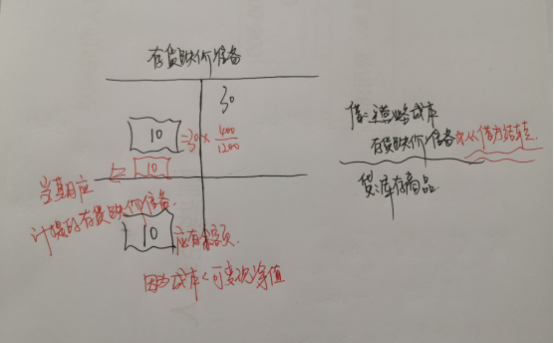 存货跌价准备
30
10 =30× 400/1200
10
当期应
计提的存货跌价准备.
10 应有余额.
因为成本<可变现净值
借:主营业务成本
存货跌价准备 从借方结转
贷:库存商品